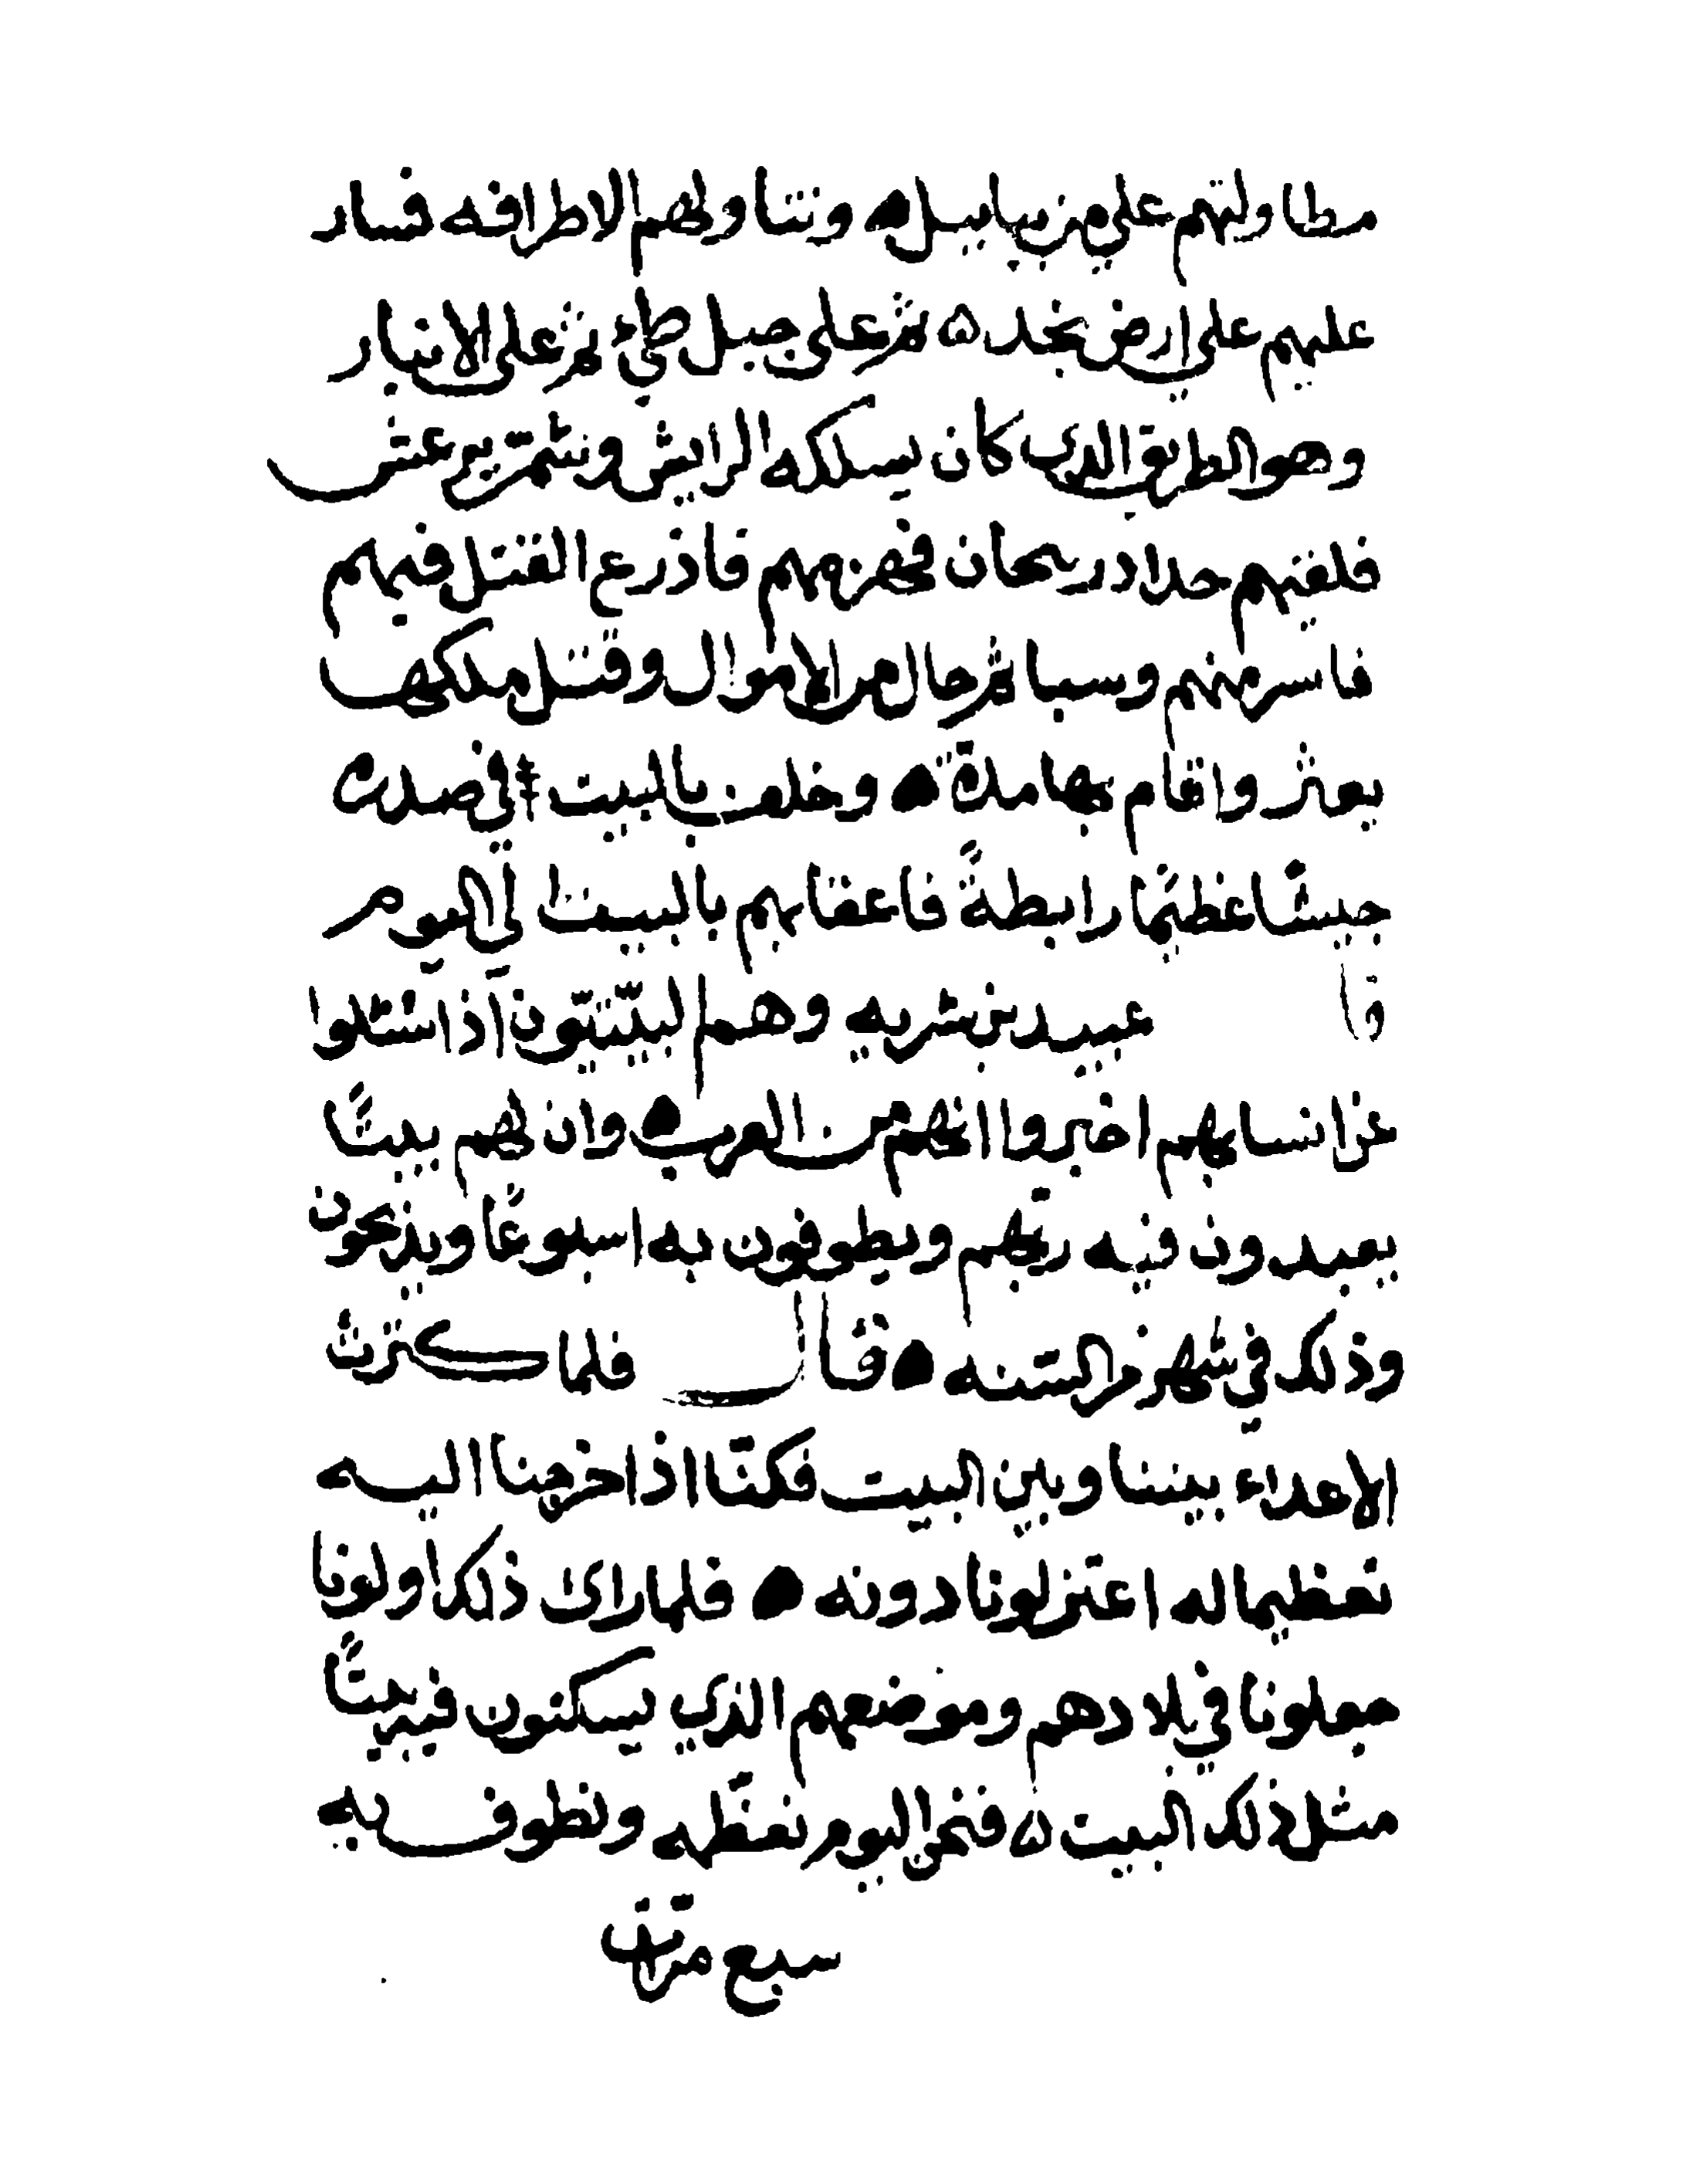 مطاولتهم على من يبابيل ونتناولهم الاطرافه فسار
عليهم على ارض نجد ه ثم على جبل طيئ ثم على الانبار
وهو الطريق الذي كان يسلكه الرايش وشمر يرعش
فلقيهم حدا ادربيحان فهزمهم فاذرع القتل فيهم
فاسر منهم وسبا ثم حال من الاموال وقتل ملكهم
يعثر واقام بها مدة وخلف بالبيت في صدره
جيشًا عظيمًا رابطةً فاعقابهم بالبيت الى اليوم
قا عبيد بن شريه وهم البيّتيّون اذا سئلوا
عن انسابهم اخبروا انهم من العرب وان لهم بيتًا
يعبدون فيه ربّهم ويطوفون به اسبوعًا ويذبحون
وذلك في شهر من السنه قال فلما كثرت
الاعداء بيننا وبين البيت فكنّا اذا خرجنا اليه
تعظيما له اعتزلونا دونه فلما راى ذلك اولونا
جعلونا في بلادهم وموضعهم الذي يسكنون فيه بيتًا
مثل ذلك البيت ه فنحن اليوم نعظّمه ونطوف به
سبع مرّات